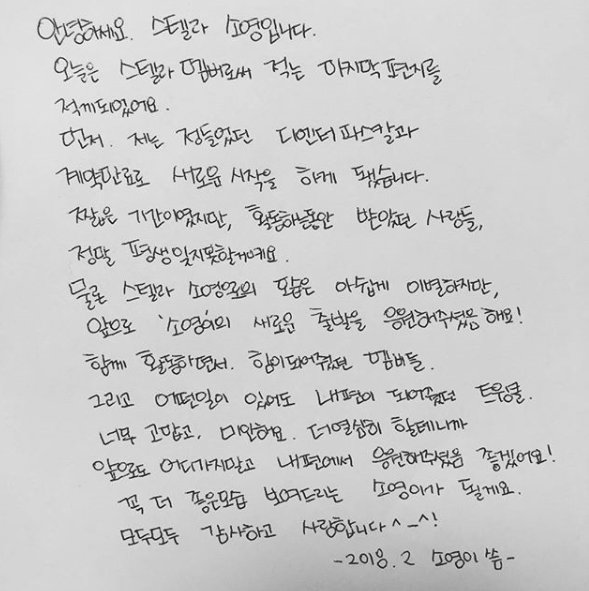 안녕하세요. 스텔라 소영입니다.
오늘은 스텔라 멤버로써 적는 마지막 편지를
적게되었어요.
먼저. 저는 정들었던 디엔터파스칼과
계약만료로 새로운 시작을 하게 됐습니다.
짧은 기간이였지만, 활동하는동안 받았던 사랑들,
정말 평생잊지못할거예요.
물론 스텔라 소영으로의 모습은 아쉽게 이별하지만,
앞으로 '소영이'의 새로운 출발을 응원해주셨음해요!
함께 활동하면서. 힘이되어줬던 멤버들.
그리고 어떤일이 있어도 내편이 되어줬던 트윙클.
너무 고맙고, 미안해요. 더열심히 할테니까
앞으로도 어디가지말고 내편에서 응원해주셨음 좋겠어요!
꼭 더 좋은모습 보여드리는 소영이가 될게요.
모두모두 감사하고 사랑합니다^-^!
-2018. 2 소영이 씀-